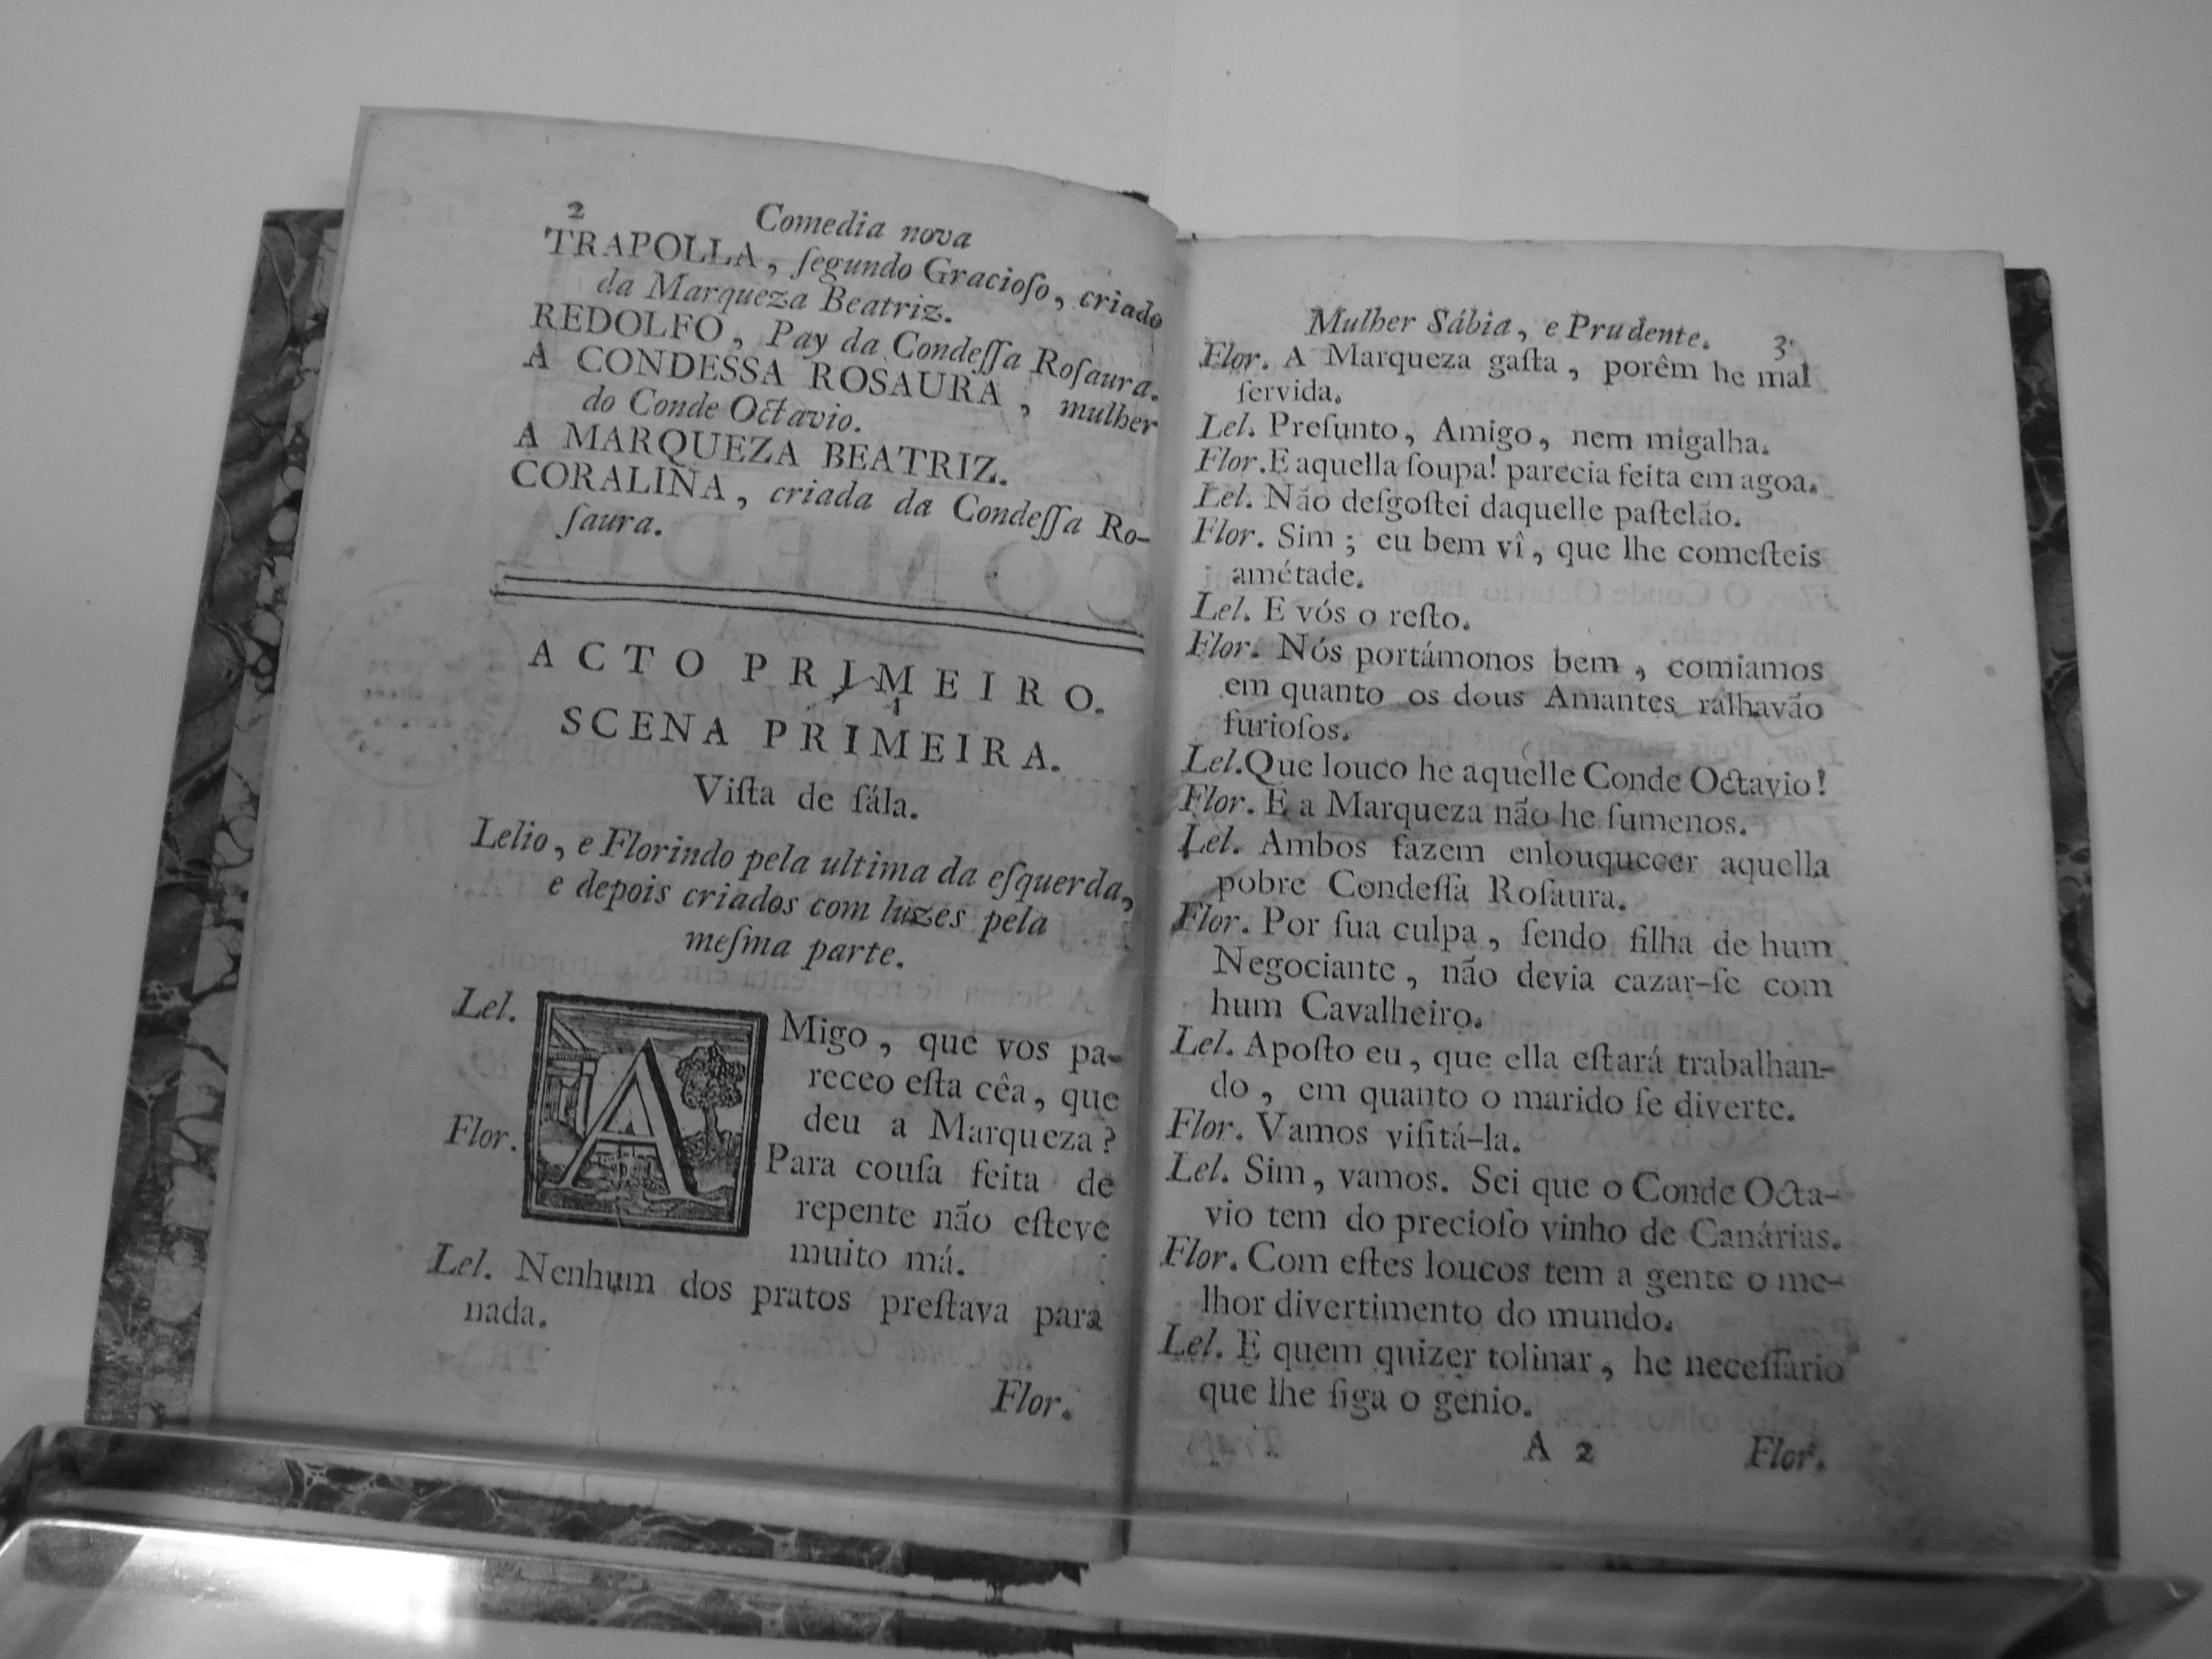 2
Comedia nova
TRAPOLLA, ſegundo Gracioſo, criado
da Marqueza Beatriz.
REDOLFO, Pay da Condeſſa Roſaura.
A CONDESSA ROSAURA, mulher
do Conde Octavio.
A MARQUEZA BEATRIZ.
CORALINA, criada da Condeſſa Ro-
ſaura.
ACTO PRIMEIRO.
SCENA PRIMEIRA.
Viſta de ſála.
Lelio, e Florindo pela ultima da eſquerda,
e depois criados com luzes pela
meſma parte.
Lel. AMigo, que vos pa-
receo eſta cêa, que
deu a Marqueza?
Flor. Para couſa feita de
repente não eſteve
muito má.
Lel. Nenhum dos pratos preſtava para
nada.
Flor.
Mulher Sábia, e Prudente. 3
Flor. A Marqueza gaſta, porêm he mal
ſervida.
Lel. Preſunto, Amigo, nem migalha.
Flor. E aquella ſoupa! parecia feita em agoa.
Lel. Não deſgoſtei daquelle paſtelão.
Flor. Sim; eu bem vî, que lhe comeſteis
amétade.
Lel. E vós o reſto.
Flor. Nós portámonos bem, comiamos
em quanto os dous Amantes ralhavão
furioſos.
Lel. Que louco he aquelle Conde Octavio!
Flor. E a Marqueza não he ſumenos.
Lel. Ambos fazem enlouquecer aquella
pobre Condeſſa Roſaura.
Flor. Por ſua culpa, ſendo filha de hum
Negociante, não devia cazar-ſe com
hum Cavalheiro.
Lel. Apoſto eu, que ella eſtará trabalhan-
do, em quanto o marido ſe diverte.
Flor. Vamos viſitá-la.
Lel. Sim, vamos. Sei que o Conde Octa-
vio tem do precioſo vinho de Canárias.
Flor. Com eſtes loucos tem a gente o me-
lhor divertimento do mundo.
Lel. E quem quizer tolinar, he neceſſario
que lhe ſiga o genio.
A 2 Flor.